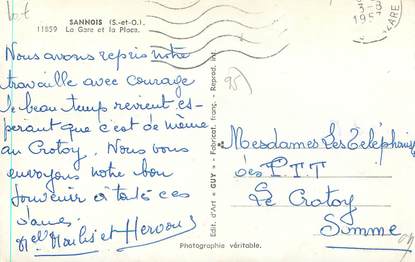 SANNOIS (S.-et-O.).
11859 La Gare et la Place.
Nous avons repris notre
travaille avec courage
le beau temp revient es-
periant que c'est de même
au Crotoy. Nous vous
envoyons notre bon
souvenir à toute ces
dames.
et Hervou
Edit. d'Art "GUY" - Fabricat. franç. - Reprod. int
95
Mesdames Les Telephonistes
des P.T.T
Le Crotoy
Somme
Photographie véritable.
GARE